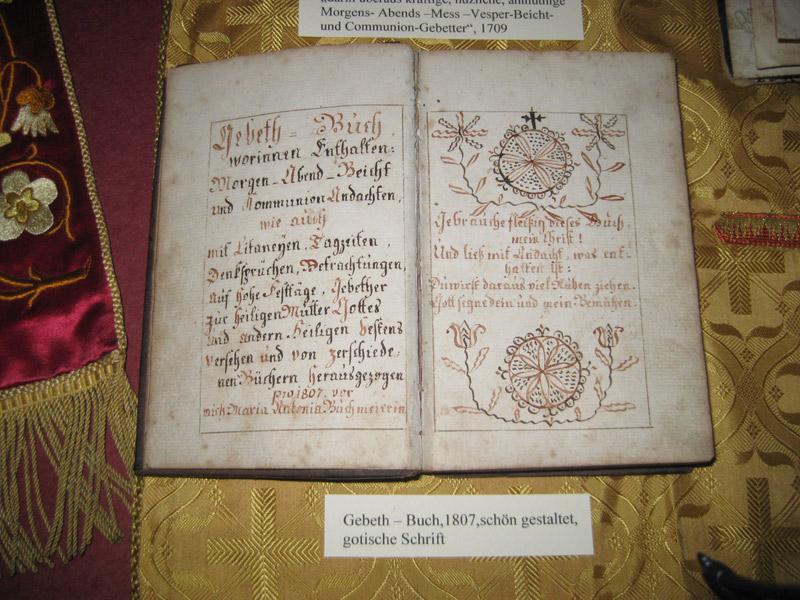 „darin überaus kräftige, nuzliche, anmuthige
Morgens- Abends –Mess –Vesper-Beicht-
und Communion-Gebetter“, 1709
Gebeth = Buch
worinnen Enthalten:
Morgen – Abend – Beicht
und Kommunion Andachten,
wie auch
mit Litaneyen, Tagzeiten,
Denksprüchen, Betrachtungen,
auf hohe Festtäge, Gebether
zur heiligen Mutter Gottes
und andern Heiligen bestens
versehen und von zerschiede-
nen Büchern herausgezogen
pro 1807. vor
mich Maria Antonia Buchmeyerin
Gebrauche fleißig dieses Buch
mein Christ!
Und ließ mit Andacht, was ent-
halten ist:
Du wirst daraus viel Nutzen ziehen.
Gott segne dein und mein Bemühen.
Gebeth – Buch,1807,schön gestaltet,
gotische Schrift